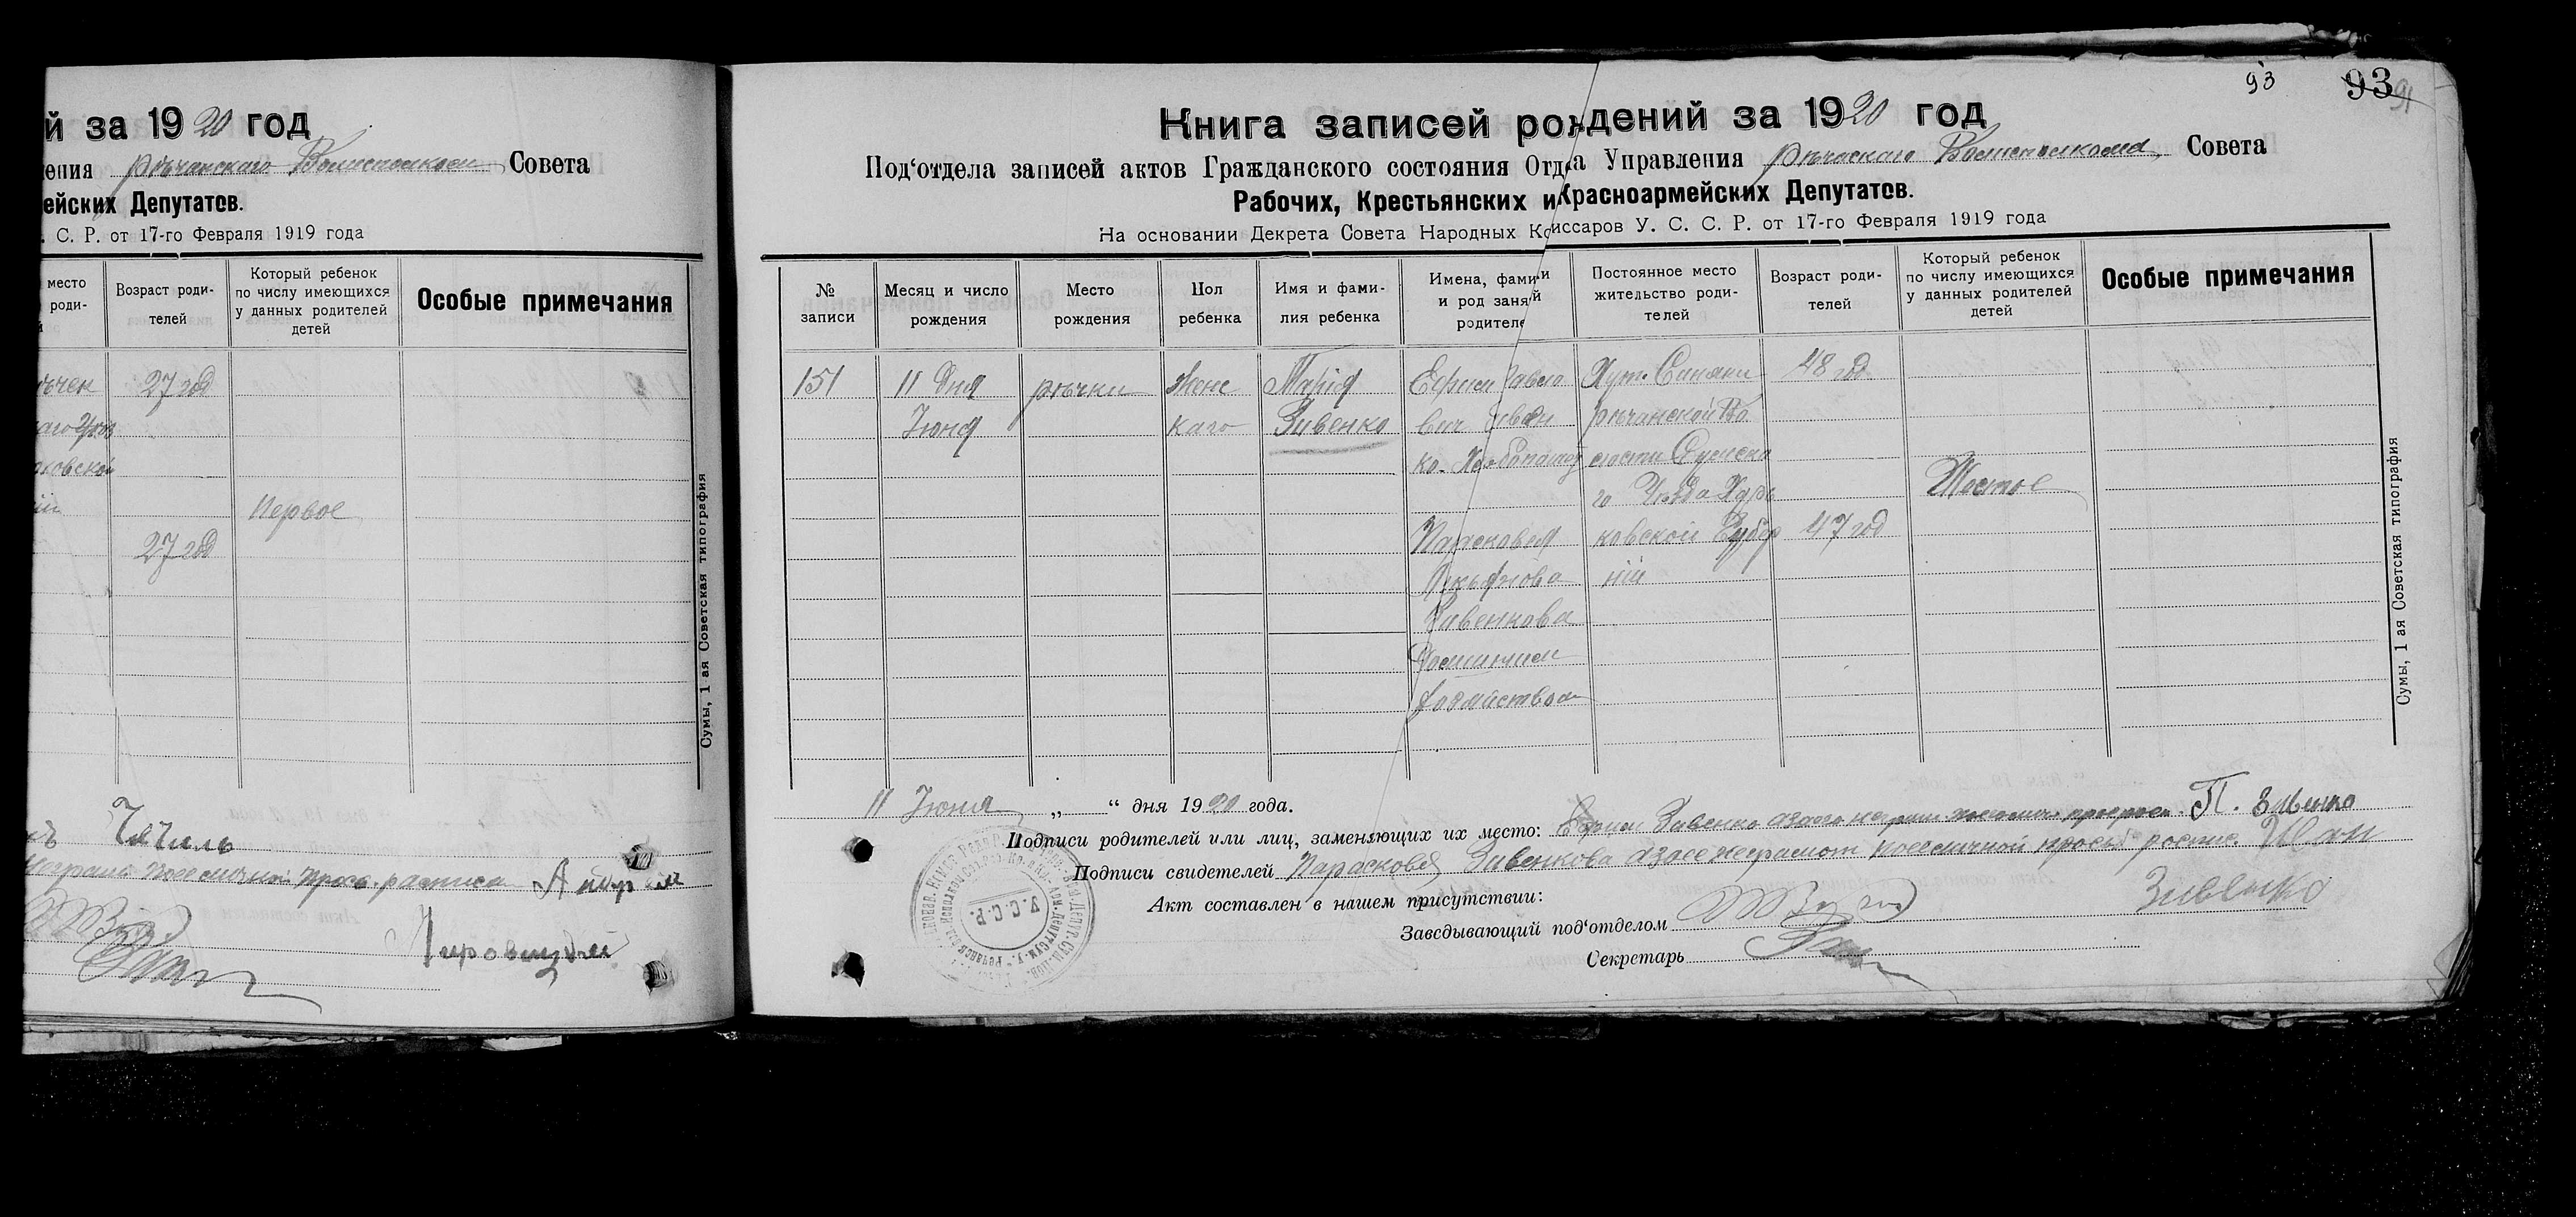 й за 1920 год
ения рѣчанскаго Волисполком Совета
ейских Депутатов.
. С. Р. от 17-го Февраля 1919 года
место
роди-
й
Возраст роди-
телей
Который ребенок
по числу имеющихся
у данных родителей
детей
Особые примечания
27 год
Первое
27 год
Сумы, 1 ая Советская типография
93 93 91
Книга записей рождений за 1920 год
Под‘отдела записей актов Гражданского состояния Отдела Управления рѣчанскаго Волисполкома Совета
Рабочих, Крестьянских и Красноармейских Депутатов.
На основании Декрета Совета Народных Комиссаров У. С. С. Р. от 17-го Февраля 1919 года
№
записи
Месяц и число
рождения
Место
рождения
Пол
ребенка
Имя и фами-
лия ребенка
Имена, фамилии
и род занятий
родителей
Постоянное место
жительство роди-
телей
Возраст роди-
телей
Который ребенок
по числу имеющихся
у данных родителей
детей
Особые примечания
151
11 дня
Июня
рѣчки
Женс
каго
Марія
Зивенко
Ефим Павло
вич Зивен
ко. Хлебопашец
Парасковья
Зивенкова
Домашнем
хозяйством
Хут. Синяки
рѣчанской Во
лости Сумска
го Уѣзда Харь
ковской Губер
ніи
48 год
47 год
Шестое
Сумы, 1 ая Советская типография
11 Июня „ “ дня 1920 года.
Подписи родителей или лиц, заменяющих их место: Ефим Зивенко а за его неграм. П. Зивенко
Подписи свидетелей Парасковея Зивенкова а за ее неграмот по ее личной прось роспис. Иван
Зивенко
Акт составлен в нашем присутствии:
Заведывающий под‘отделом
Секретарь
У. С. С. Р.